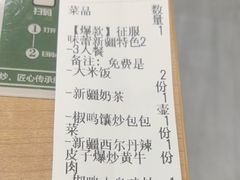 扫码
菜品 数量
【爆款】征服 1
味蕾新疆特色2
-3人餐
备注：免费是
-大米饭 2份
-新疆奶茶 1壶
-椒鸣馕炒包包菜 1份
-新疆西尔丹辣皮子爆炒黄牛肉 1份
炒，匠心传承